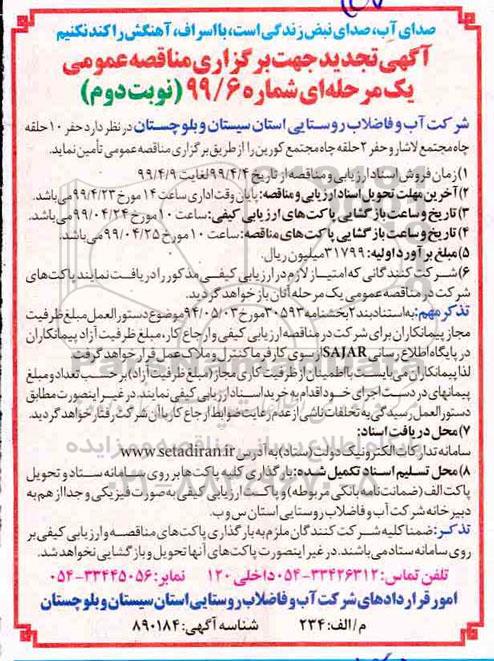 صدای آب، صدای نبض زندگی است، با اسراف، آهنگش را کند نکنیم
آگهی تجدید جهت برگزاری مناقصه عمومی
یک مرحله‌ای شماره ۹۹/۶ (نوبت دوم)
شرکت آب و فاضلاب روستایی استان سیستان و بلوچستان در نظر دارد حفر ۱۰ حلقه
چاه مجتمع لاشار و حفر ۲ حلقه چاه مجتمع کورین را از طریق برگزاری مناقصه عمومی تأمین نماید.
۱) زمان فروش اسناد ارزیابی و مناقصه از تاریخ ۹۹/۴/۴ لغایت ۹۹/۴/۹
۲) آخرین مهلت تحویل اسناد ارزیابی و مناقصه: پایان وقت اداری ساعت ۱۴ مورخ ۹۹/۴/۲۳ می‌باشد.
۳) تاریخ و ساعت بازگشایی پاکت‌های ارزیابی کیفی: ساعت ۱۰ مورخ ۹۹/۰۴/۲۴ می‌باشد.
۴) تاریخ و ساعت بازگشایی پاکت‌های مناقصه: ساعت ۱۰ مورخ ۹۹/۰۴/۲۵ می‌باشد.
۵) مبلغ برآورد اولیه: ۳۱۷۹۹ میلیون ریال.
۶) شرکت کنندگانی که امتیاز لازم در ارزیابی کیفی مذکور را دریافت نمایند پاکت‌های
شرکت در مناقصه عمومی یک مرحله آنان باز خواهد گردید.
تذکر مهم: به استناد بند ۲ بخشنامه ۳۰۵۹۳ مورخ ۹۴/۰۵/۰۳ موضوع دستورالعمل مبلغ ظرفیت
مجاز پیمانکاران برای شرکت در مناقصه ارزیابی کیفی و ارجاع کار، مبلغ ظرفیت آزاد پیمانکاران
در پایگاه اطلاع رسانی SAJAR از سوی کارفرما کنترل و ملاک عمل قرار خواهد گرفت
لذا پیمانکاران می‌بایست با اطمینان از ظرفیت کاری مجاز (مبلغ ظرفیت آزاد) بر حسب تعداد و مبلغ
پیمانهای در دست اجرای خود اقدام به خرید اسناد ارزیابی کیفی نمایند. در غیر اینصورت مطابق
دستورالعمل رسیدگی به تخلفات ناشی از عدم رعایت ضوابط ارجاع کار با آن شرکت رفتار خواهد گردید.
۷) محل دریافت اسناد:
سامانه تدارکات الکترونیک دولت (ستاد) به آدرس www.setadiran.ir
۸) محل تسلیم اسناد تکمیل شده: بارگذاری کلیه پاکت‌ها بر روی سامانه ستاد و تحویل
پاکت الف (ضمانت نامه بانکی مربوطه) و پاکت ارزیابی کیفی به صورت فیزیکی و جدا از هم به
دبیرخانه شرکت آب و فاضلاب روستایی استان س و ب.
تذکر: ضمنا کلیه شرکت کنندگان ملزم به بارگذاری پاکت‌های مناقصه و ارزیابی کیفی بر
روی سامانه ستاد می‌باشند. در غیر اینصورت پاکت‌های آنها تحویل و بازگشایی نخواهد شد.
تلفن تماس: ۳۳۴۲۶۳۱۲-۰۵۴ داخلی ۱۲۰ نمابر: ۳۳۴۴۵۰۵۶-۰۵۴
امور قراردادهای شرکت آب و فاضلاب روستایی استان سیستان و بلوچستان
م/الف: ۲۳۴ شناسه آگهی: ۸۹۰۱۸۴